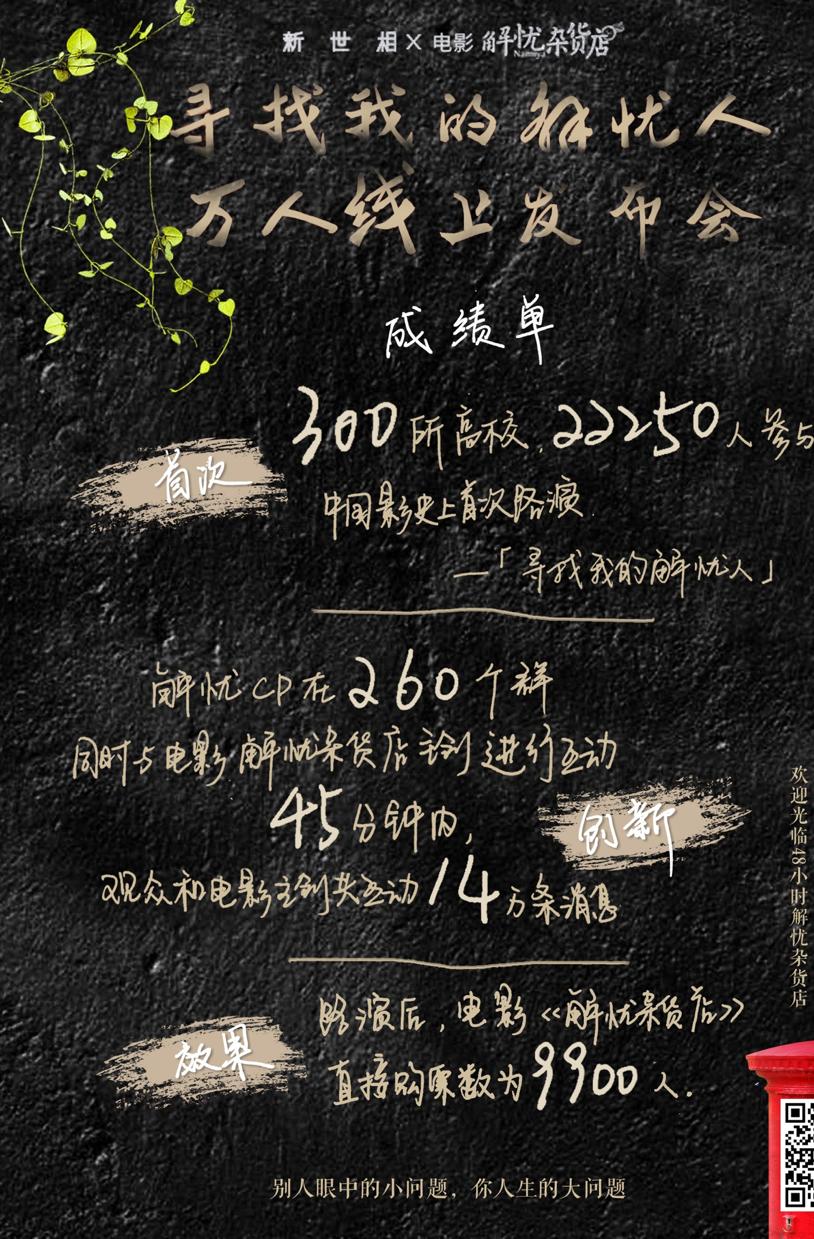 新世相×电影解忧杂货店
Namiya
寻找我的解忧人
万人线上发布会
成绩单
首次
300所高校,22250人参与
中国影史上首次路演
—「寻找我的解忧人」
解忧CP在260个群
同时与电影解忧杂货店主创进行互动
45分钟内,
创新
观众和电影主创共互动14万条消息
效果
路演后,电影《解忧杂货店》
直接购票数为9900人.
欢迎光临48小时解忧杂货店
别人眼中的小问题,你人生的大问题